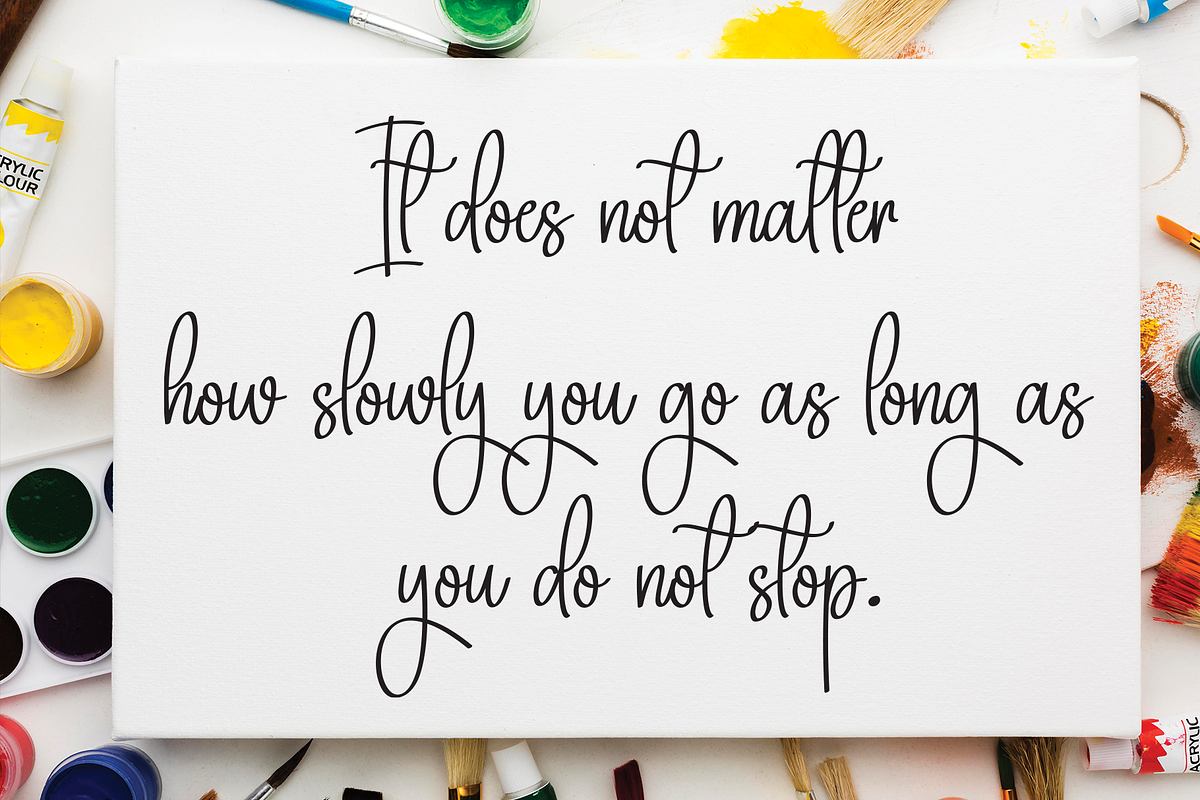 It does not matter
how slowly you go as long as
you do not stop.
CRYLIC
LOUR
ACRYLIC